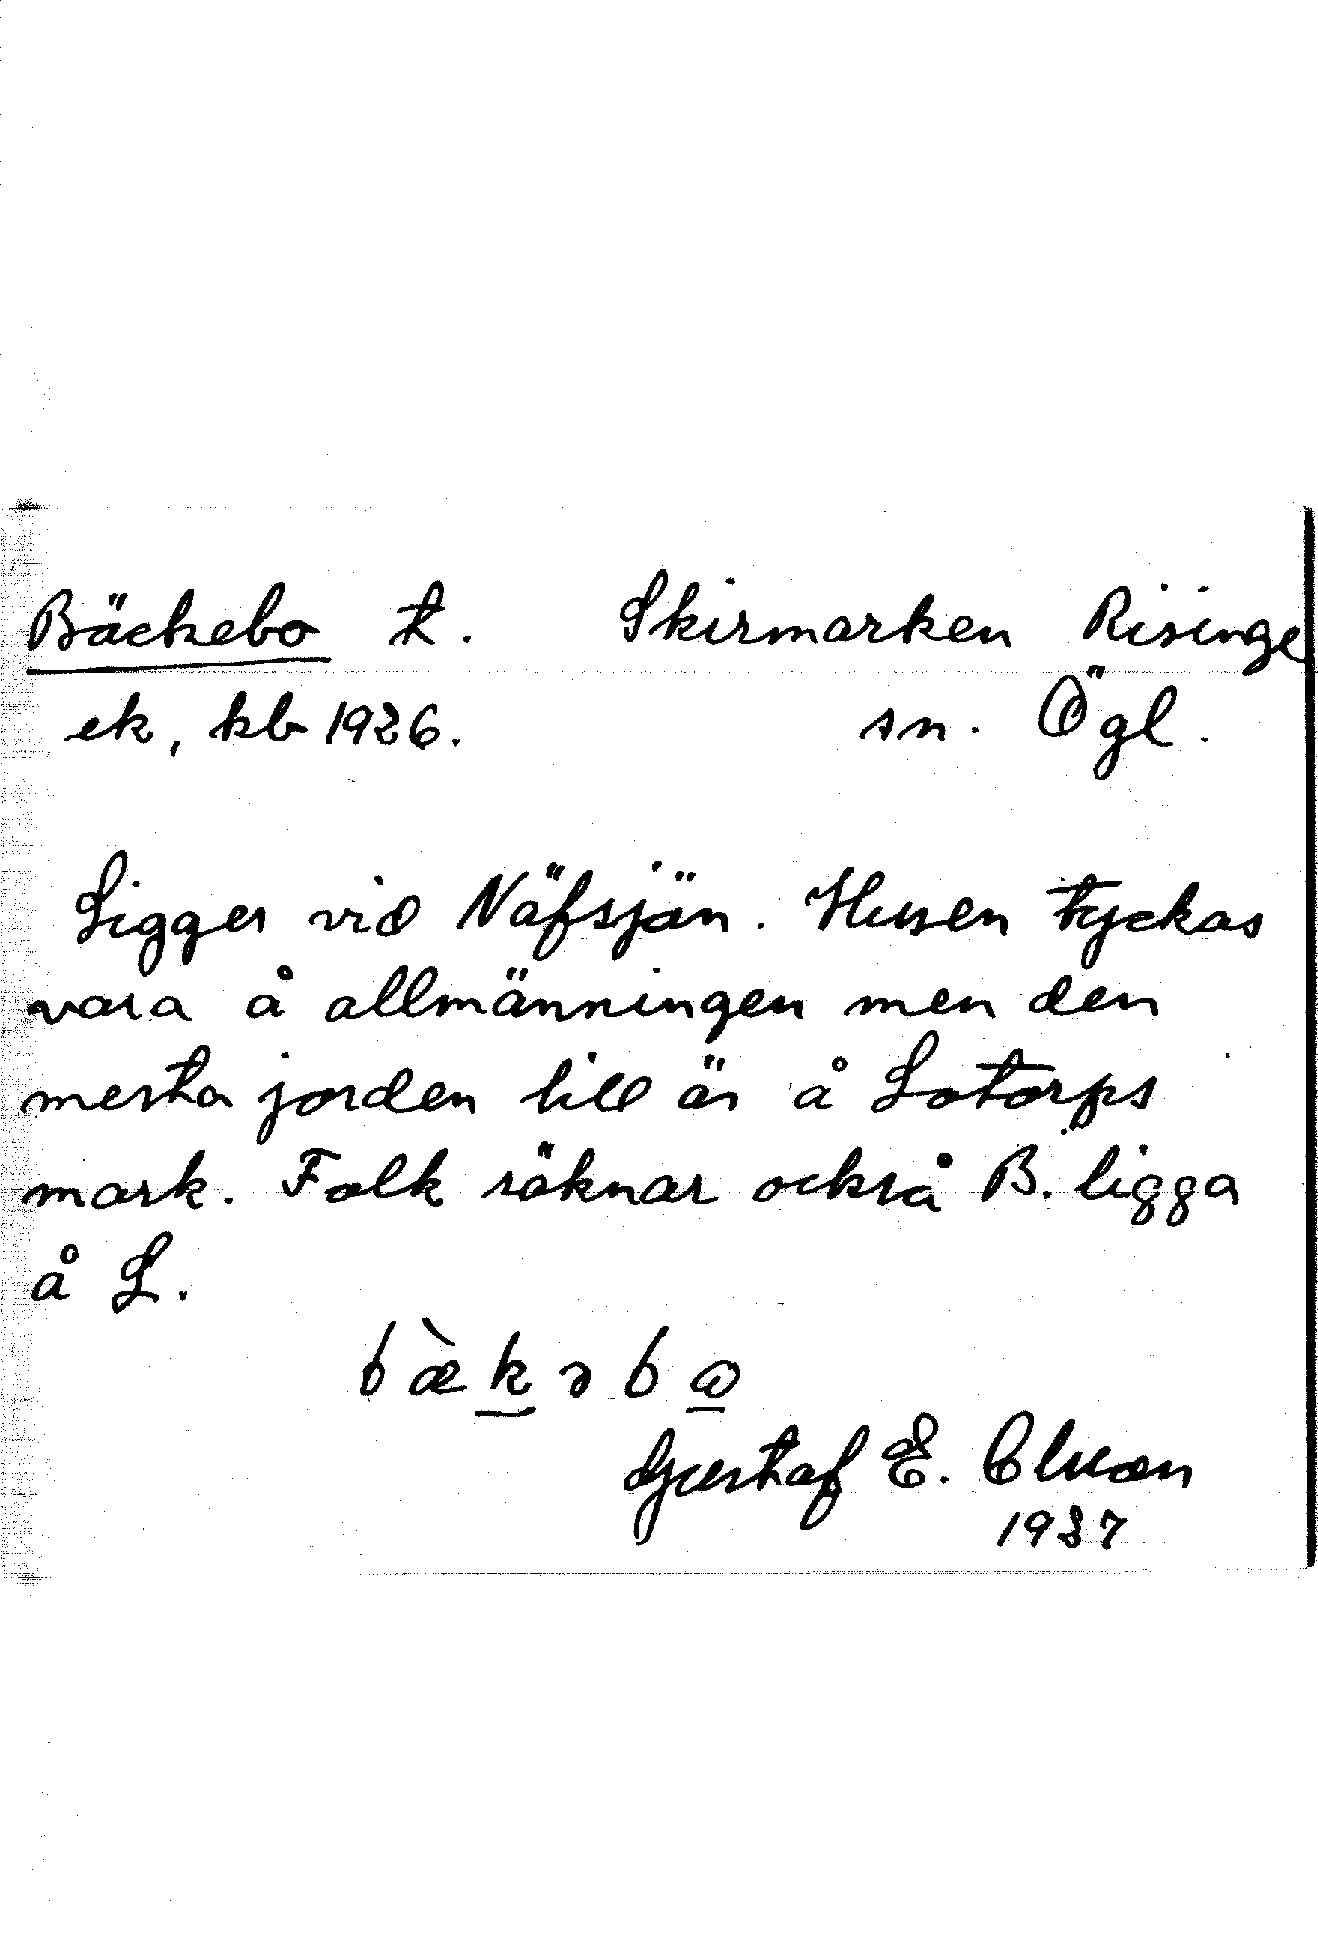 Bäckebo t. Skirmarken Risinge
ek, kb 1926. sn. Ögl.
Ligger vid Näfsjön. Husen tyckas
vara å allmänningen men den
mesta jorden till är å Lotorps
mark. Folk räknar också B. ligga
å L.
bæ̀kəbω
Gustaf E. Olsson
1937